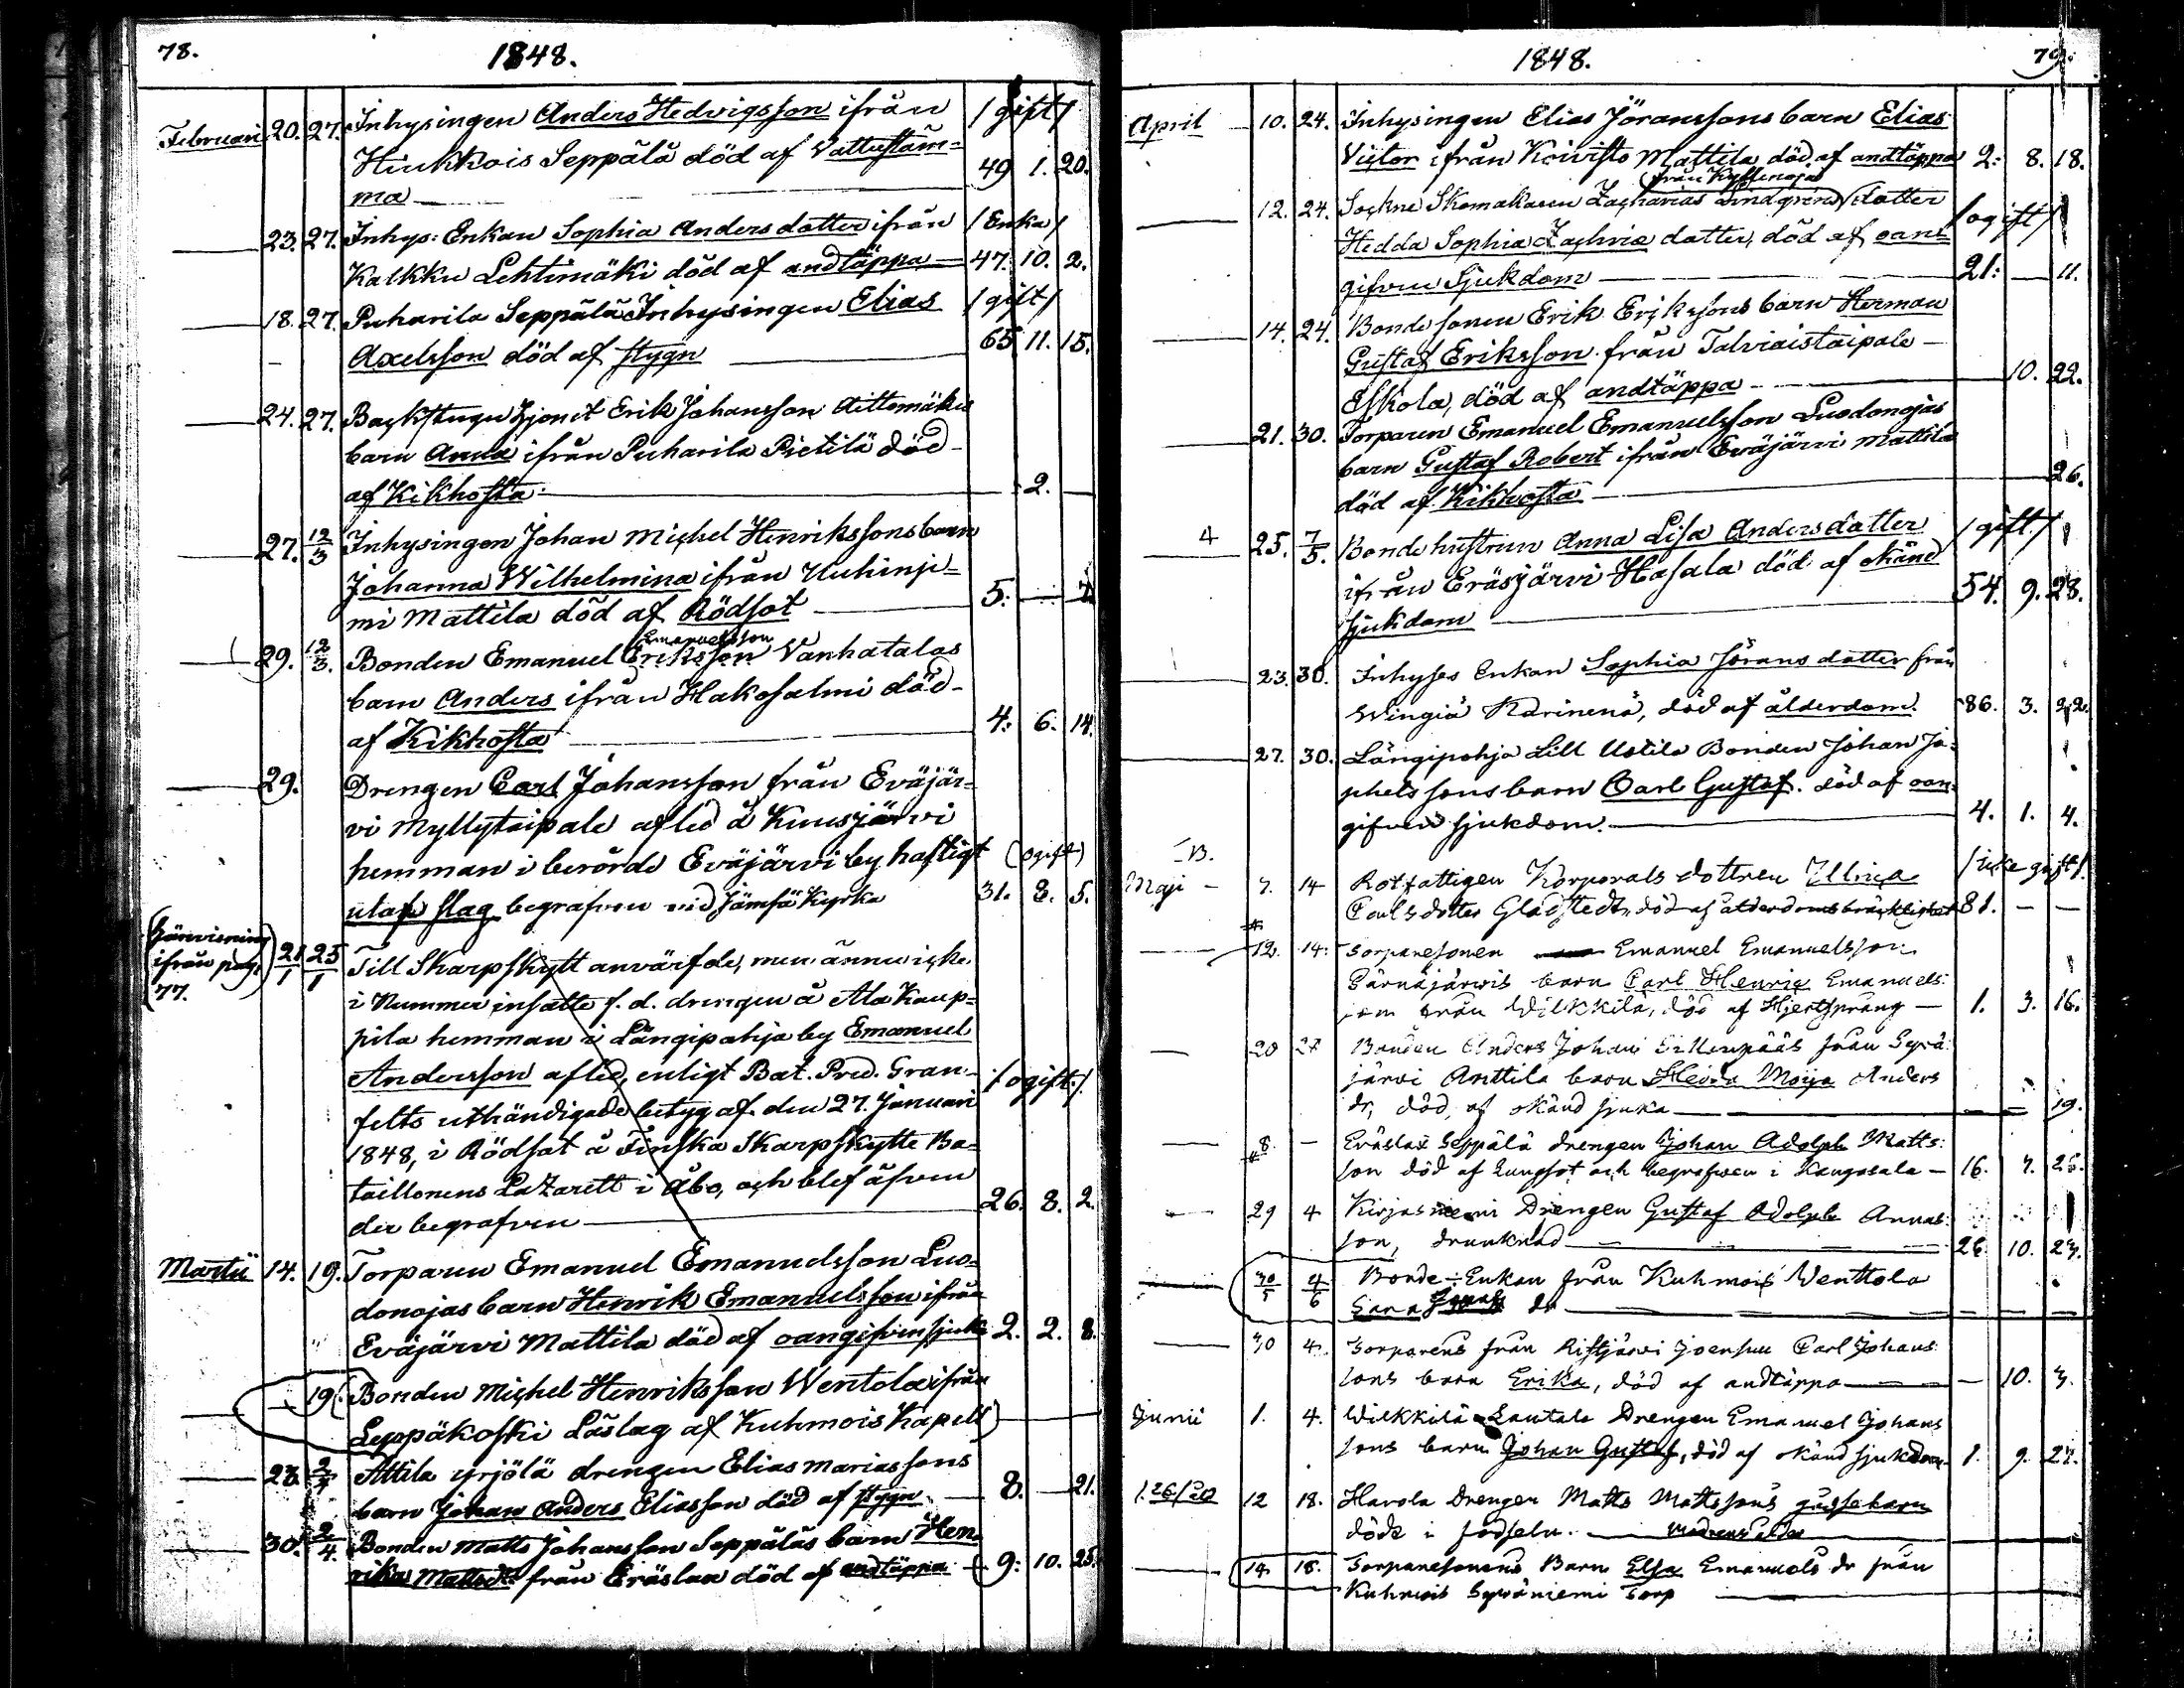 78.
1848.
Februari 20. 27. Inhysingen Anders Hedvigsson ifrån /gift/
Hiukkois Seppälä död af Vattustäm= 49 1. 20.
ma
23. 27. Inhys: Enkan Sophia Anders dotter ifrån /Enka/
Kalkku Lehtimäki död af andtäppa 47. 10. 2.
18. 27. Puharila Seppälä Inhysingen Elias /gift/
Axelsson död af stygn 65. 11. 15.
24. 27. Backstugu Hjonet Erik Johansson Aittomäkis
barn Anna ifrån Puharila Pietilä död
af Kikhosta 2.
27. 12/3 Inhysingen Johan Michel Henrikssons barn
Johanna Wilhelmina ifrån Uuhinje=
mi Mattila död af Rödsot 5. 7
Emanuelsson
29. 12/3. Bonden Emanuel Eriksson Vanhatalos
barn Anders ifrån Hakosalmi död
af Kikhosta 4. 6. 14.
29. Drengen Carl Johansson från Eväjär=
vi Myllytaipale afled å Kuusjärvi
hemman i berörde Eväjärvi by haftigt (ogift)
utaf slag begrafven vid Jämsä Kyrka 31. 8. 5.
(Hänvisning
ifrån pag.
77.
21/1 25/1 Till Skarpskytt anvärfde, men ännu icke
i Nummer insatte f. d. drengen å Ala Kaup=
pila hemman i Längipohja by Emanuel
Andersson afled, enligt Bat. Pred. Gran= /ogift:/
felts uthändigade betyg af den 27. Januari
1848, i Rödsot å Finska Skarpskytte Ba=
taillonens LaZarett i Åbo, och blef äfven
der begrafven 26. 8. 2.
Martii 14. 19. Torparen Emanuel Emanuelsson Luo=
donojas barn Henrik Emanuelsson ifrån
Eväjärvi Mattila död af oangifven sjukd 2. 2. 8.
19. Bonden Michel Henriksson Wentola ifrån
Leppäkoski Läslag af Kuhmois Kapell)
23. 2/4 Attila yrjölä drengen Elias mariassons
barn Johan Anders Eliasson död af stygn 8. 21.
30. 2/4. Bonden Matts Johansson Seppäläs barn Hen=
rika Mattsdr från Eräslax död af andtäppa 9: 10. 25.
1848.
79.
April 10. 24. Inhysingen Elias Jöranssons barn Elias
Victor ifrån Koivisto Mattila död af andtäppa 2: 8. 18.
från Kyllenoja
12. 24. Sockne Skomakaren Zacharias Lindgrens dotter /ogift/
Hedda Sophia Zachriæ dotter, död af oan=
gifven Sjukdom 21: 11.
14. 24. Bonde sonen Erik Erikssons barn Herman
Gustaf Eriksson från Talviaistaipale
Eskola, död af andtäppa 10. 22.
21. 30. Torparen Emanuel Emanuelsson Luodonojas
barn Gustaf Robert ifrån Eväjärvi Mattila
död af Kikhosta 26.
4 25. 7/5. Bonde hustrun Anna Lisa Andersdotter /gift./
ifrån Eräsjärvi Hasala död af okänd
sjukdom 54. 9. 28.
23. 30. Inhyses Enkan Sophia Jörans dotter från
Wingiä Karinenä, död af ålderdom 86. 3. 22.
27. 30. Längipohja Lill Uotila Bonden Johan Ja=
phets sons barn Carl Gustaf. död af oan=
gifven sjukdom. 4. 1. 4.
13.
Maji 7. 14 Rotfattigen Korporals dottren Ulrica /icke gift/.
Carlsdotter Gladstedt, död af ålderdomsbräcklighet 81.
12. 14. Torparesonen Emanuel Emanuelsson
Särnäjärwis barn Carl Henric Emanuels:
son från Wilkkilä, död af Hjertsprång 1. 3. 16.
20 27 Bonden Anders Johan från Syvä
järvi Anttila barn Hedda Moija Anders
dr, död af okänd sjuka 19.
8. Eväslax Seppälä drengen Johan Adolph Matts:
son död af Lungsot och begrafven i Kangasala 16. 7. 25.
29 4 Kirjasniemi Drengen Gustaf Adolph Annas
son, drunknad 26 10. 27.
30/5 4/6 Bonde-Enkan från Kuhmois Wenttola
dr
30 4. Torparens från Ristjärvi Joensuu Carl Johans
sons barn Erika, död af andtäppa 10. 3.
Junii 1. 4. Wilkkilä Lautala Drengen Emanuel Johans
sons barn Johan Gustaf, död af okänd sjukdom 1. 9. 27.
12 18. Havola Drengen Matts Mattssons gossebarn
döde i födseln. Modrens ålder
14 18. Torparesonens Barn Elsa Emanuels dr från
Kuhmois Syväniemi Torp